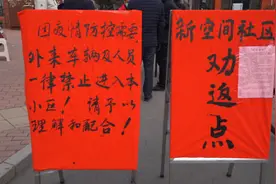 因疫情防控需要
外来车辆及人员
一律禁止进入本
小区！请予以
理解和配合！
新空间社区
劝
返
点